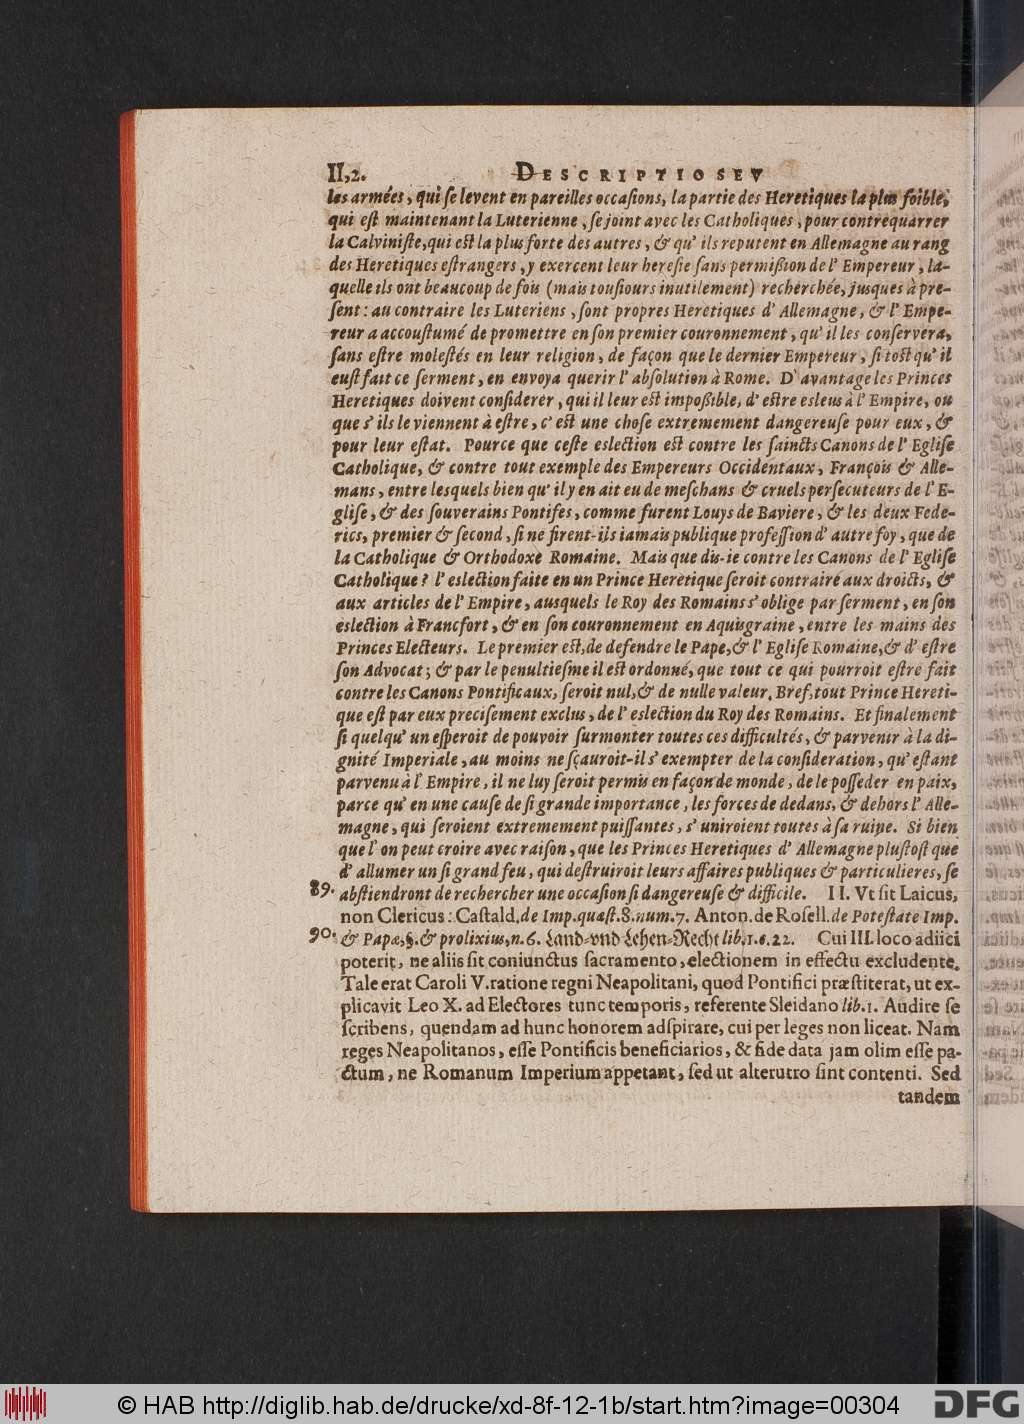 II,2. DESCRIPTIO SEV
les armées, qui ſe levent en pareilles occaſions, la partie des Heretiques la plus foible,
qui eſt maintenant la Luterienne, ſe joint avec les Catholiques, pour contrequarrer
la Calviniſte, qui eſt la plus forte des autres, & qu' ils reputent en Allemagne au rang
des Heretiques eſtrangers, y exercent leur hereſie ſans permißion de l' Empereur, la-
quelle ils ont beaucoup de fois (mais touſiours inutilement) recherchée, jusques à pre-
ſent: au contraire les Luteriens, ſont propres Heretiques d' Allemagne, & l' Empe-
reur a accouſtumé de promettre en ſon premier couronnement, qu' il les conſervera,
ſans eſtre moleſtés en leur religion, de façon que le dernier Empereur, ſi toſt qu' il
euſt fait ce ſerment, en envoya querir l' abſolution à Rome. D' avantage les Princes
Heretiques doivent conſiderer, qui il leur eſt impoßible, d' eſtre esleus à l' Empire, ou
que s' ils le viennent à eſtre, c' eſt une choſe extremement dangereuſe pour eux, &
pour leur eſtat. Pource que ceſte eslection eſt contre les ſaincts Canons de l' Egliſe
Catholique, & contre tout exemple des Empereurs Occidentaux, François & Alle-
mans, entre lesquels bien qu' il y en ait eu de meſchans & cruels perſecuteurs de l' E-
gliſe, & des ſouverains Pontifes, comme furent Louys de Baviere, & les deux Fede-
rics, premier & ſecond, ſi ne firent-ils iamais publique profeſſion d' autre foy, que de
la Catholique & Orthodoxe Romaine. Mais que dis-ie contre les Canons de l' Egliſe
Catholique? l' eslection faite en un Prince Heretique ſeroit contraire aux droicts, &
aux articles de l' Empire, ausquels le Roy des Romains s' oblige par ſerment, en ſon
eslection à Francfort, & en ſon couronnement en Aquisgraine, entre les mains des
Princes Electeurs. Le premier eſt, de defendre le Pape, & l' Egliſe Romaine, & d' eſtre
ſon Advocat; & par le penultieſme il eſt ordonné, que tout ce qui pourroit eſtre fait
contre les Canons Pontificaux, ſeroit nul, & de nulle valeur. Bref, tout Prince Hereti-
que eſt par eux preciſement exclus, de l' eslection du Roy des Romains. Et finalement
ſi quelqu' un eſperoit de pouvoir ſurmonter toutes ces difficultés, & parvenir à la di-
gnité Imperiale, au moins ne ſçauroit-il s' exempter de la conſideration, qu' eſtant
parvenu à l' Empire, il ne luy ſeroit permis en façon de monde, de le poſſeder en paix,
parce qu' en une cauſe de ſi grande importance, les forces de dedans, & dehors l' Alle-
magne, qui ſeroient extremement puiſſantes, s' uniroient toutes à ſa ruine. Si bien
que l' on peut croire avec raiſon, que les Princes Heretiques d' Allemagne pluſtoſt que
d' allumer un ſi grand feu, qui deſtruiroit leurs affaires publiques & particulieres, ſe
89. abſtiendront de rechercher une occaſion ſi dangereuſe & difficile. II. Vt ſit Laicus,
non Clericus: Caſtald. de Imp. quæſt. 8. num. 7. Anton. de Roſell. de Poteſtate Imp.
90. & Papæ, §. & prolixius, n. 6. Land- vnd Lehen-Recht lib. 1. c. 22. Cui III. loco adiici
poterit, ne aliis ſit coniunctus ſacramento, electionem in effectu excludente.
Tale erat Caroli V. ratione regni Neapolitani, quod Pontifici præſtiterat, ut ex-
plicavit Leo X. ad Electores tunc temporis, referente Sleidano lib. 1. Audire ſe
ſcribens, quendam ad hunc honorem adſpirare, cui per leges non liceat. Nam
reges Neapolitanos, eſſe Pontificis beneficiarios, & fide data jam olim eſſe pa-
ctum, ne Romanum Imperium appetant, ſed ut alterutro ſint contenti. Sed
tandem
© HAB http://diglib.hab.de/drucke/xd-8f-12-1b/start.htm?image=00304
DFG